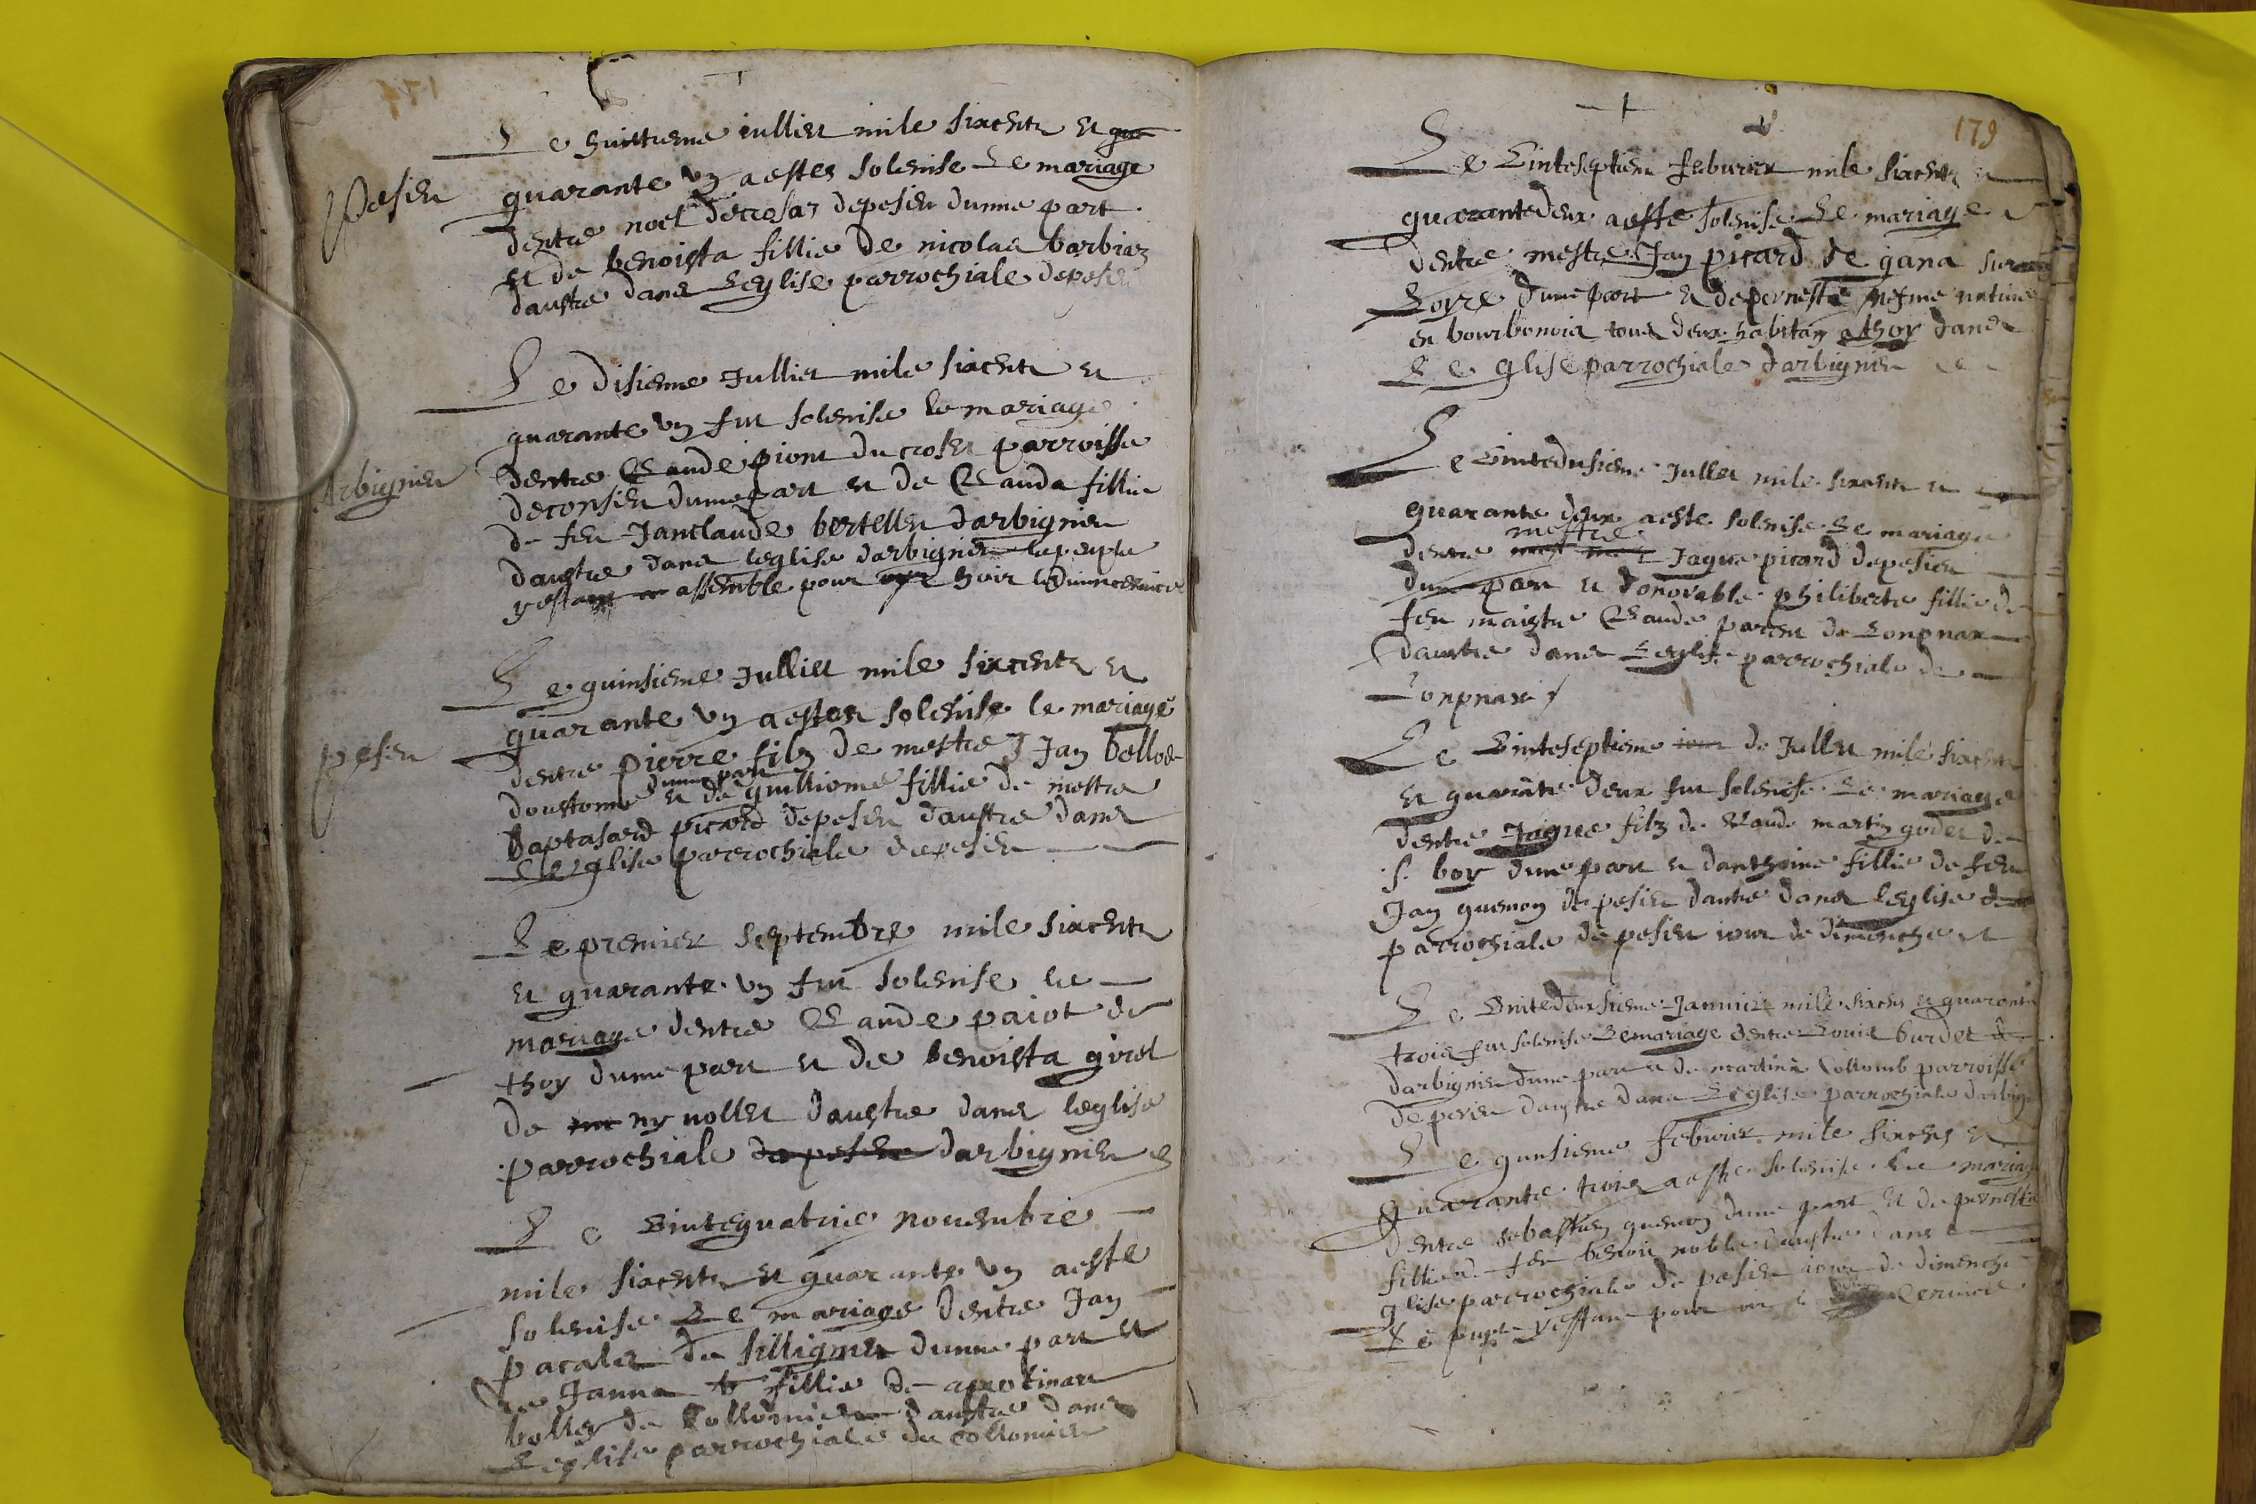 Le huictieme iullier mile sixcents et
Pesieu
quarante un a estes solenise Le mariage
dentre noel decrosaz depesieu dunne part
et de benoista fillie de nicolas barbiaz
daustre dans Leglise parrochiale depesieu
Le disieme Jullier mile sixcents et
quarante un fut solenise le mariage
Arbignieu
dentre Claude piont du croset parroisse
deconsieu dune part et de Clauda fillie
de feu Janclaude bertellet darbignieu
daustre dans leglise darbignieu le peuple
yestant assemble pour hoir le diuin seruice
Le quinsieme Jullier mile sixcents et
quarante un a estes solenise le mariage
pesieu
dentre pierre filz de mestre Jan bellod
dune part
doustonne et de guilliome fillie de mestre
baptasard picard depesieu daustre dans
Leglise parrochiale depesieu
Le premier septembre mile sixcents
et quarante un fut solenise le
mariage dentre Claude paiot de
thoy dune part et de benoista giret
de ny nollet daustre dans leglise
parrochiale de pesieu darbignieu
Le vintequatrie nouembre
mile sixcents et quarante un aeste
solenise Le mariage dentre Jan
pacalet de silligneu dunne part et
de Janna fillie de
bolley de Collomieu daustre dans
Leglise parrochiale de Collomieu
179
Le vinteseptiem feburier mile sixcents et
quarantedeux aeste solenise Le mariage
dentre mestre Jan picard de gana sur
Loyre dune part et deperneste natiue
en bourbonois tous deux habitan a thoy dans
Leglise parrochiale darbignieu
Le vintedusieme Jullet mile sixcents et
quarante deux aeste solenise Le mariage
mestre
dentre Jaque picard depesieu
dune part et donorable philiberte fillie de
feu maistre Claude parent de Lonpnax
daustre dans Leglise parrochiale de
Lonpnax
Le vinteseptieme iour de Jullet mile sixcents
et quarante deux fut solenise Le mariage
dentre Jaque filz de Claude martin godet de
S. boy dune part et danthoine fillie de feu
Jan guemon de pesieu dautre dans leglise
parrochiale de pesieu iour de dimenche
Le vintedeuxsieme Januier mile sixcens et quarante
trois fut solenise Le mariage dentre Louis burdet
darbignieu dune part et de martina Collomb parroisse
de peyrieu daustre dans Leglise parrochiale darbigni
Le quinsieme feburier mile sixcens et
quarante trois a este solenise Le mariage
dentre sebastien guemon dune part et de perneste
fillie de feu benoit noble daustre dans le
glise parrochiale de pesieu iour de dimenche
Le puple yestant pour oir le seruice